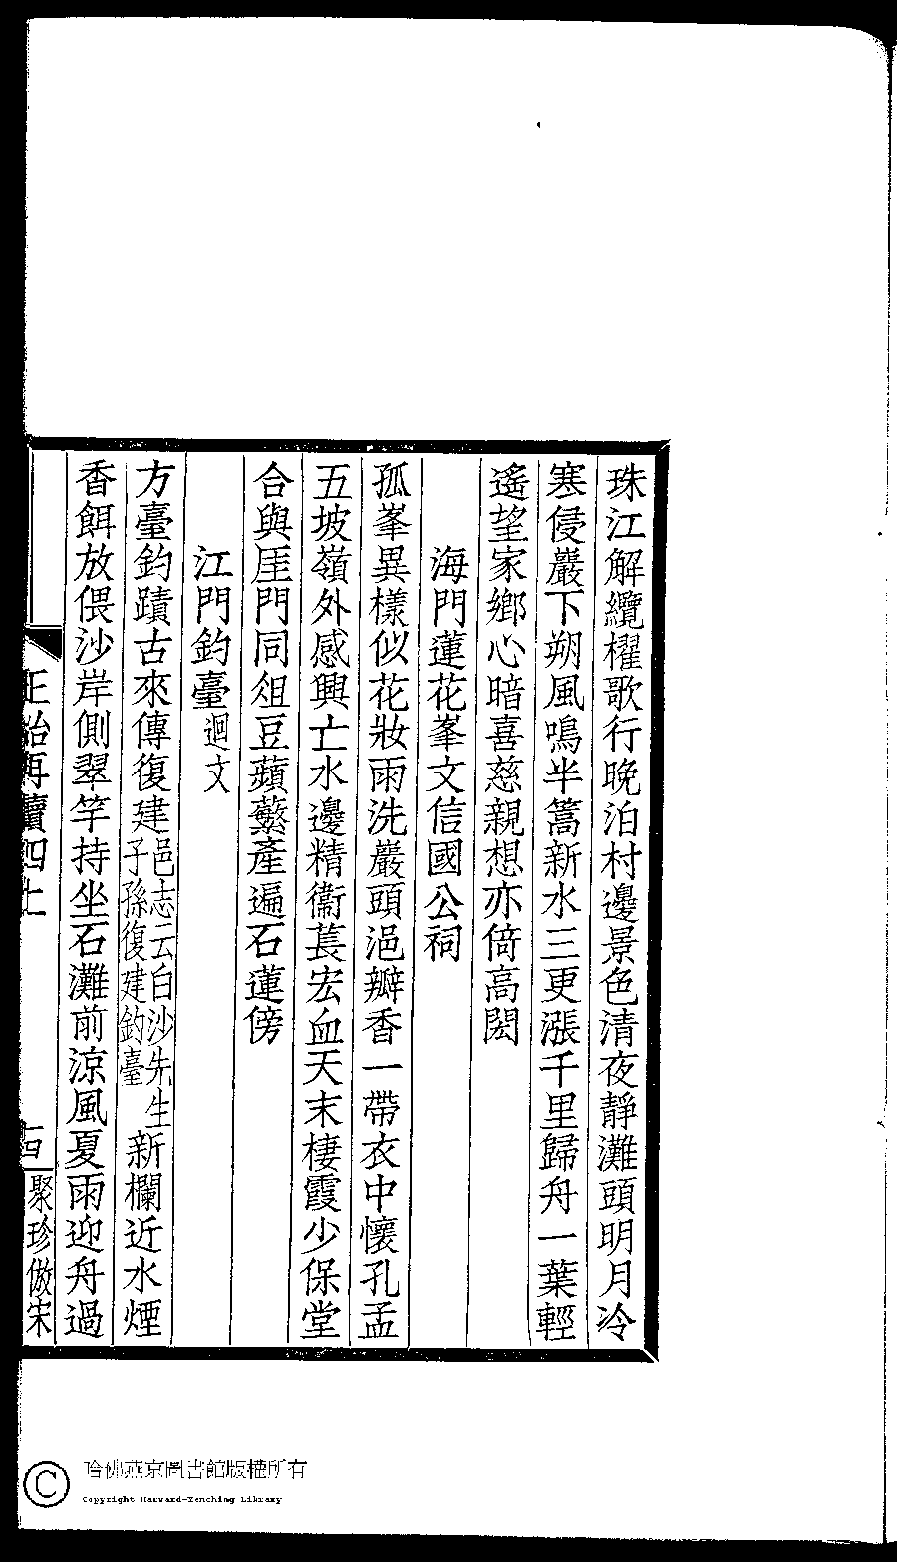 珠江解纜櫂歌行晚泊村邊景色清夜靜灘頭明月冷
寒侵巖下朔風鳴半篙新水三更漲千里歸舟一葉輕
遙望家鄉心暗喜慈親想亦倚高閎
海門蓮花峯文信國公祠
孤峯異樣似花妝雨洗巖頭浥瓣香一帶衣中懷孔孟
五坡嶺外感興亡水邊精衞萇宏血天末棲霞少保堂
合與厓門同俎豆蘋蘩產遍石蓮傍
江門釣臺迴文
方臺釣蹟古來傳復建邑志云白沙先生子孫復建釣臺新欄近水煙
香餌放偎沙岸側翠竿持坐石灘前涼風夏雨迎舟過
正始再續四上
古
聚珍倣宋
哈佛燕京圖書館版權所有
Copyright Harvard-Yenching Library